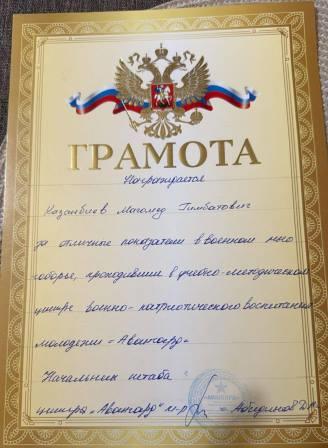 ГРАМОТА
Награждается
Казанбиев Магомед Гимбатович
за отличные показатели в военном мно
гоборье, проходившие в учебно-методическом
центре военно-патриотического воспитания
молодежи «Авангард»
Начальник штаба
центра „Авангард" м-р